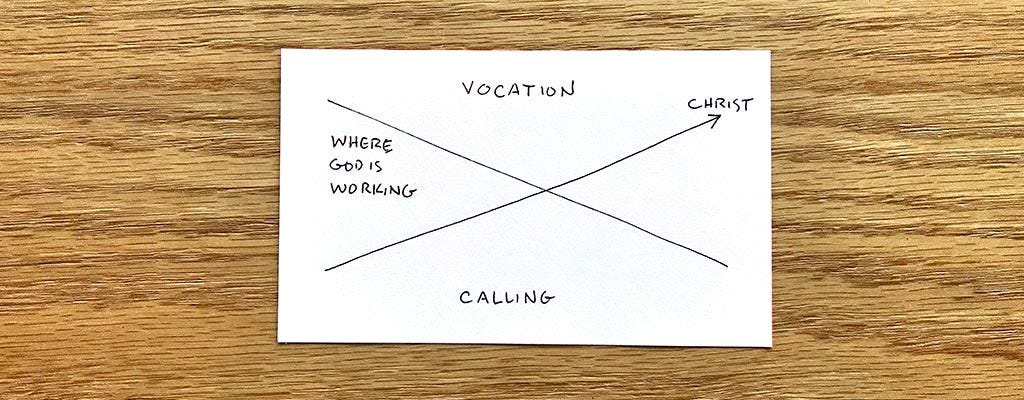 VOCATION
CHRIST
WHERE
GOD IS
WORKING
CALLING